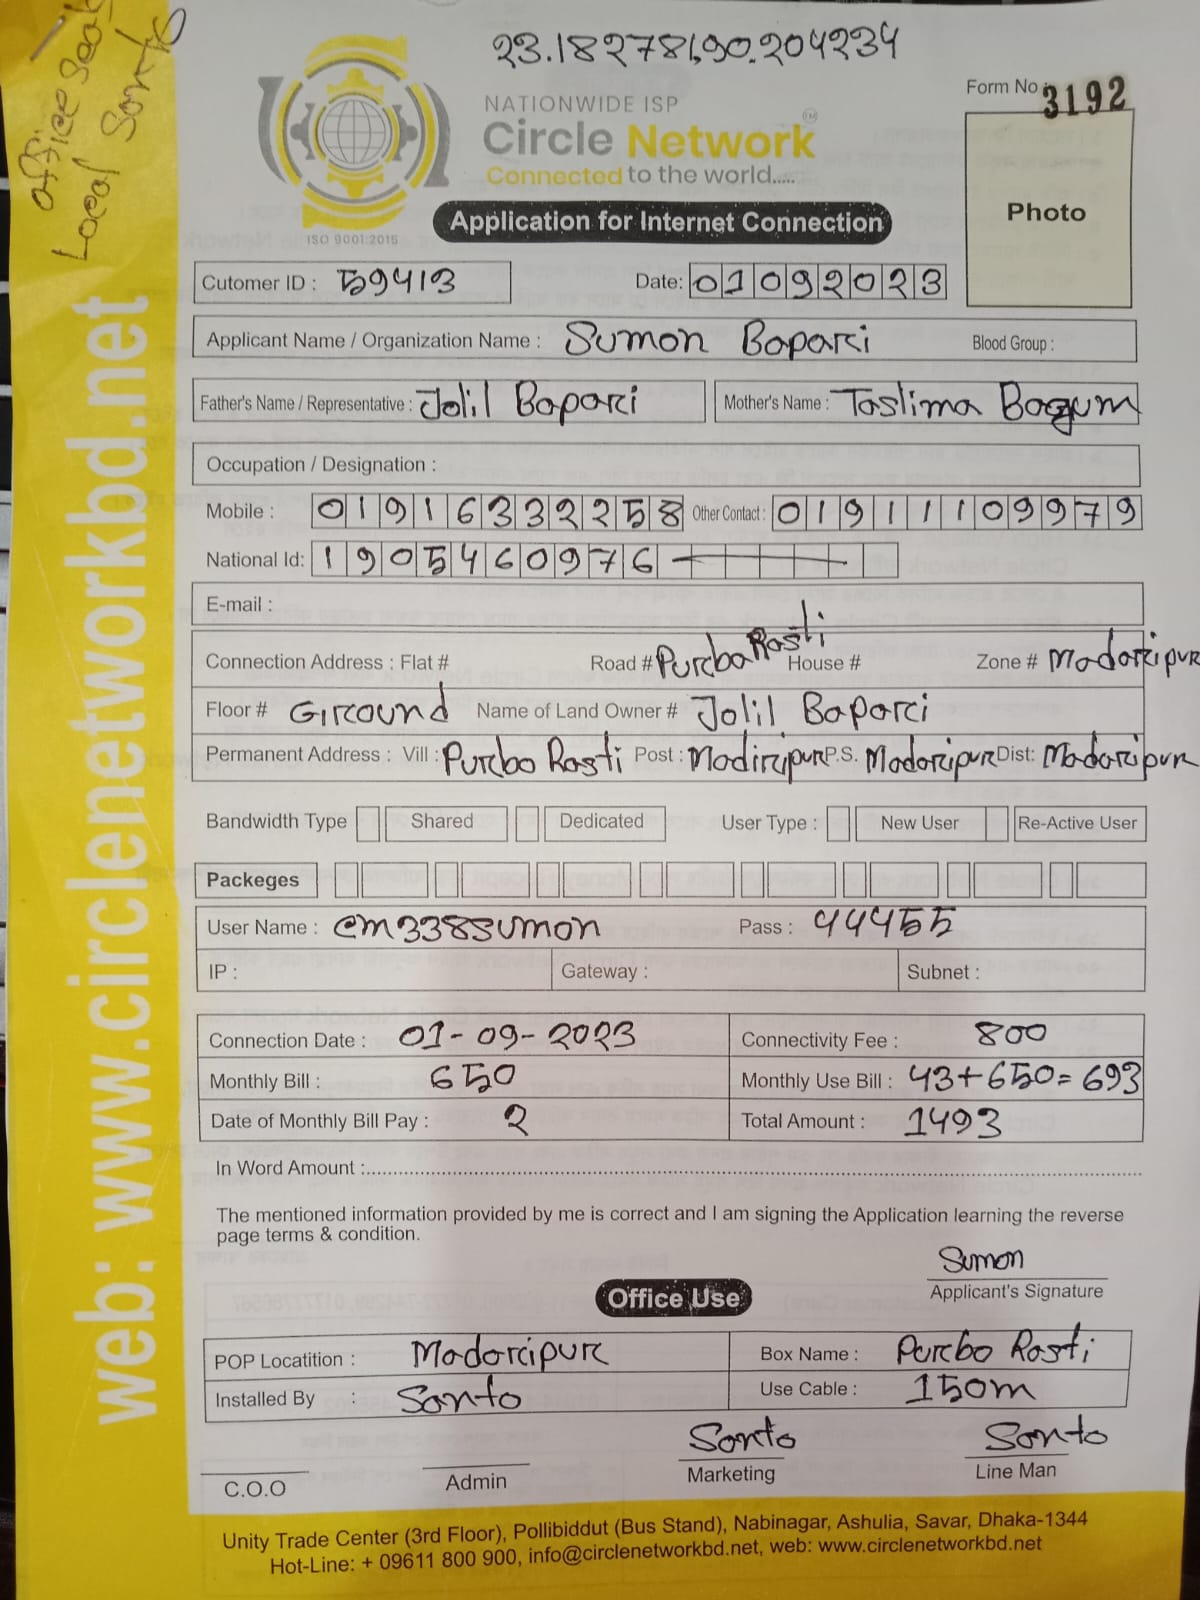 office Seal
Local Santo
23.182781,90.204234
NATIONWIDE ISP
Circle Network
Connected to the world.....
ISO 9001:2015
Form No 3192
Photo
Application for Internet Connection
Cutomer ID : 59413 Date: 01092023
Applicant Name / Organization Name : Sumon Bapari Blood Group :
Father's Name / Representative : Jolil Bapari Mother's Name : Taslima Bagum
Occupation / Designation :
Mobile : 01916332258 Other Contact : 01911109979
National Id: 1905460976
E-mail :
Connection Address : Flat # Road # Purba Rasti House # Zone # Madaripur
Floor # Ground Name of Land Owner # Jolil Bapari
Permanent Address : Vill : Purbo Rasti Post : Madiripur P.S. Madaripur Dist: Madaripur
Bandwidth Type Shared Dedicated User Type : New User Re-Active User
Packeges
User Name : cm338sumon Pass : 44455
IP : Gateway : Subnet :
Connection Date : 01-09-2023 Connectivity Fee : 800
Monthly Bill : 650 Monthly Use Bill : 43+650=693
Date of Monthly Bill Pay : 2 Total Amount : 1493
In Word Amount :
The mentioned information provided by me is correct and I am signing the Application learning the reverse
page terms & condition.
Sumon
Applicant's Signature
Office Use
POP Locatition : Madaripur Box Name : Purbo Rasti
Installed By : Santo Use Cable : 150m
Santo Santo
C.O.O Admin Marketing Line Man
Unity Trade Center (3rd Floor), Pollibiddut (Bus Stand), Nabinagar, Ashulia, Savar, Dhaka-1344
Hot-Line: + 09611 800 900, info@circlenetworkbd.net, web: www.circlenetworkbd.net
web: www.circlenetworkbd.net